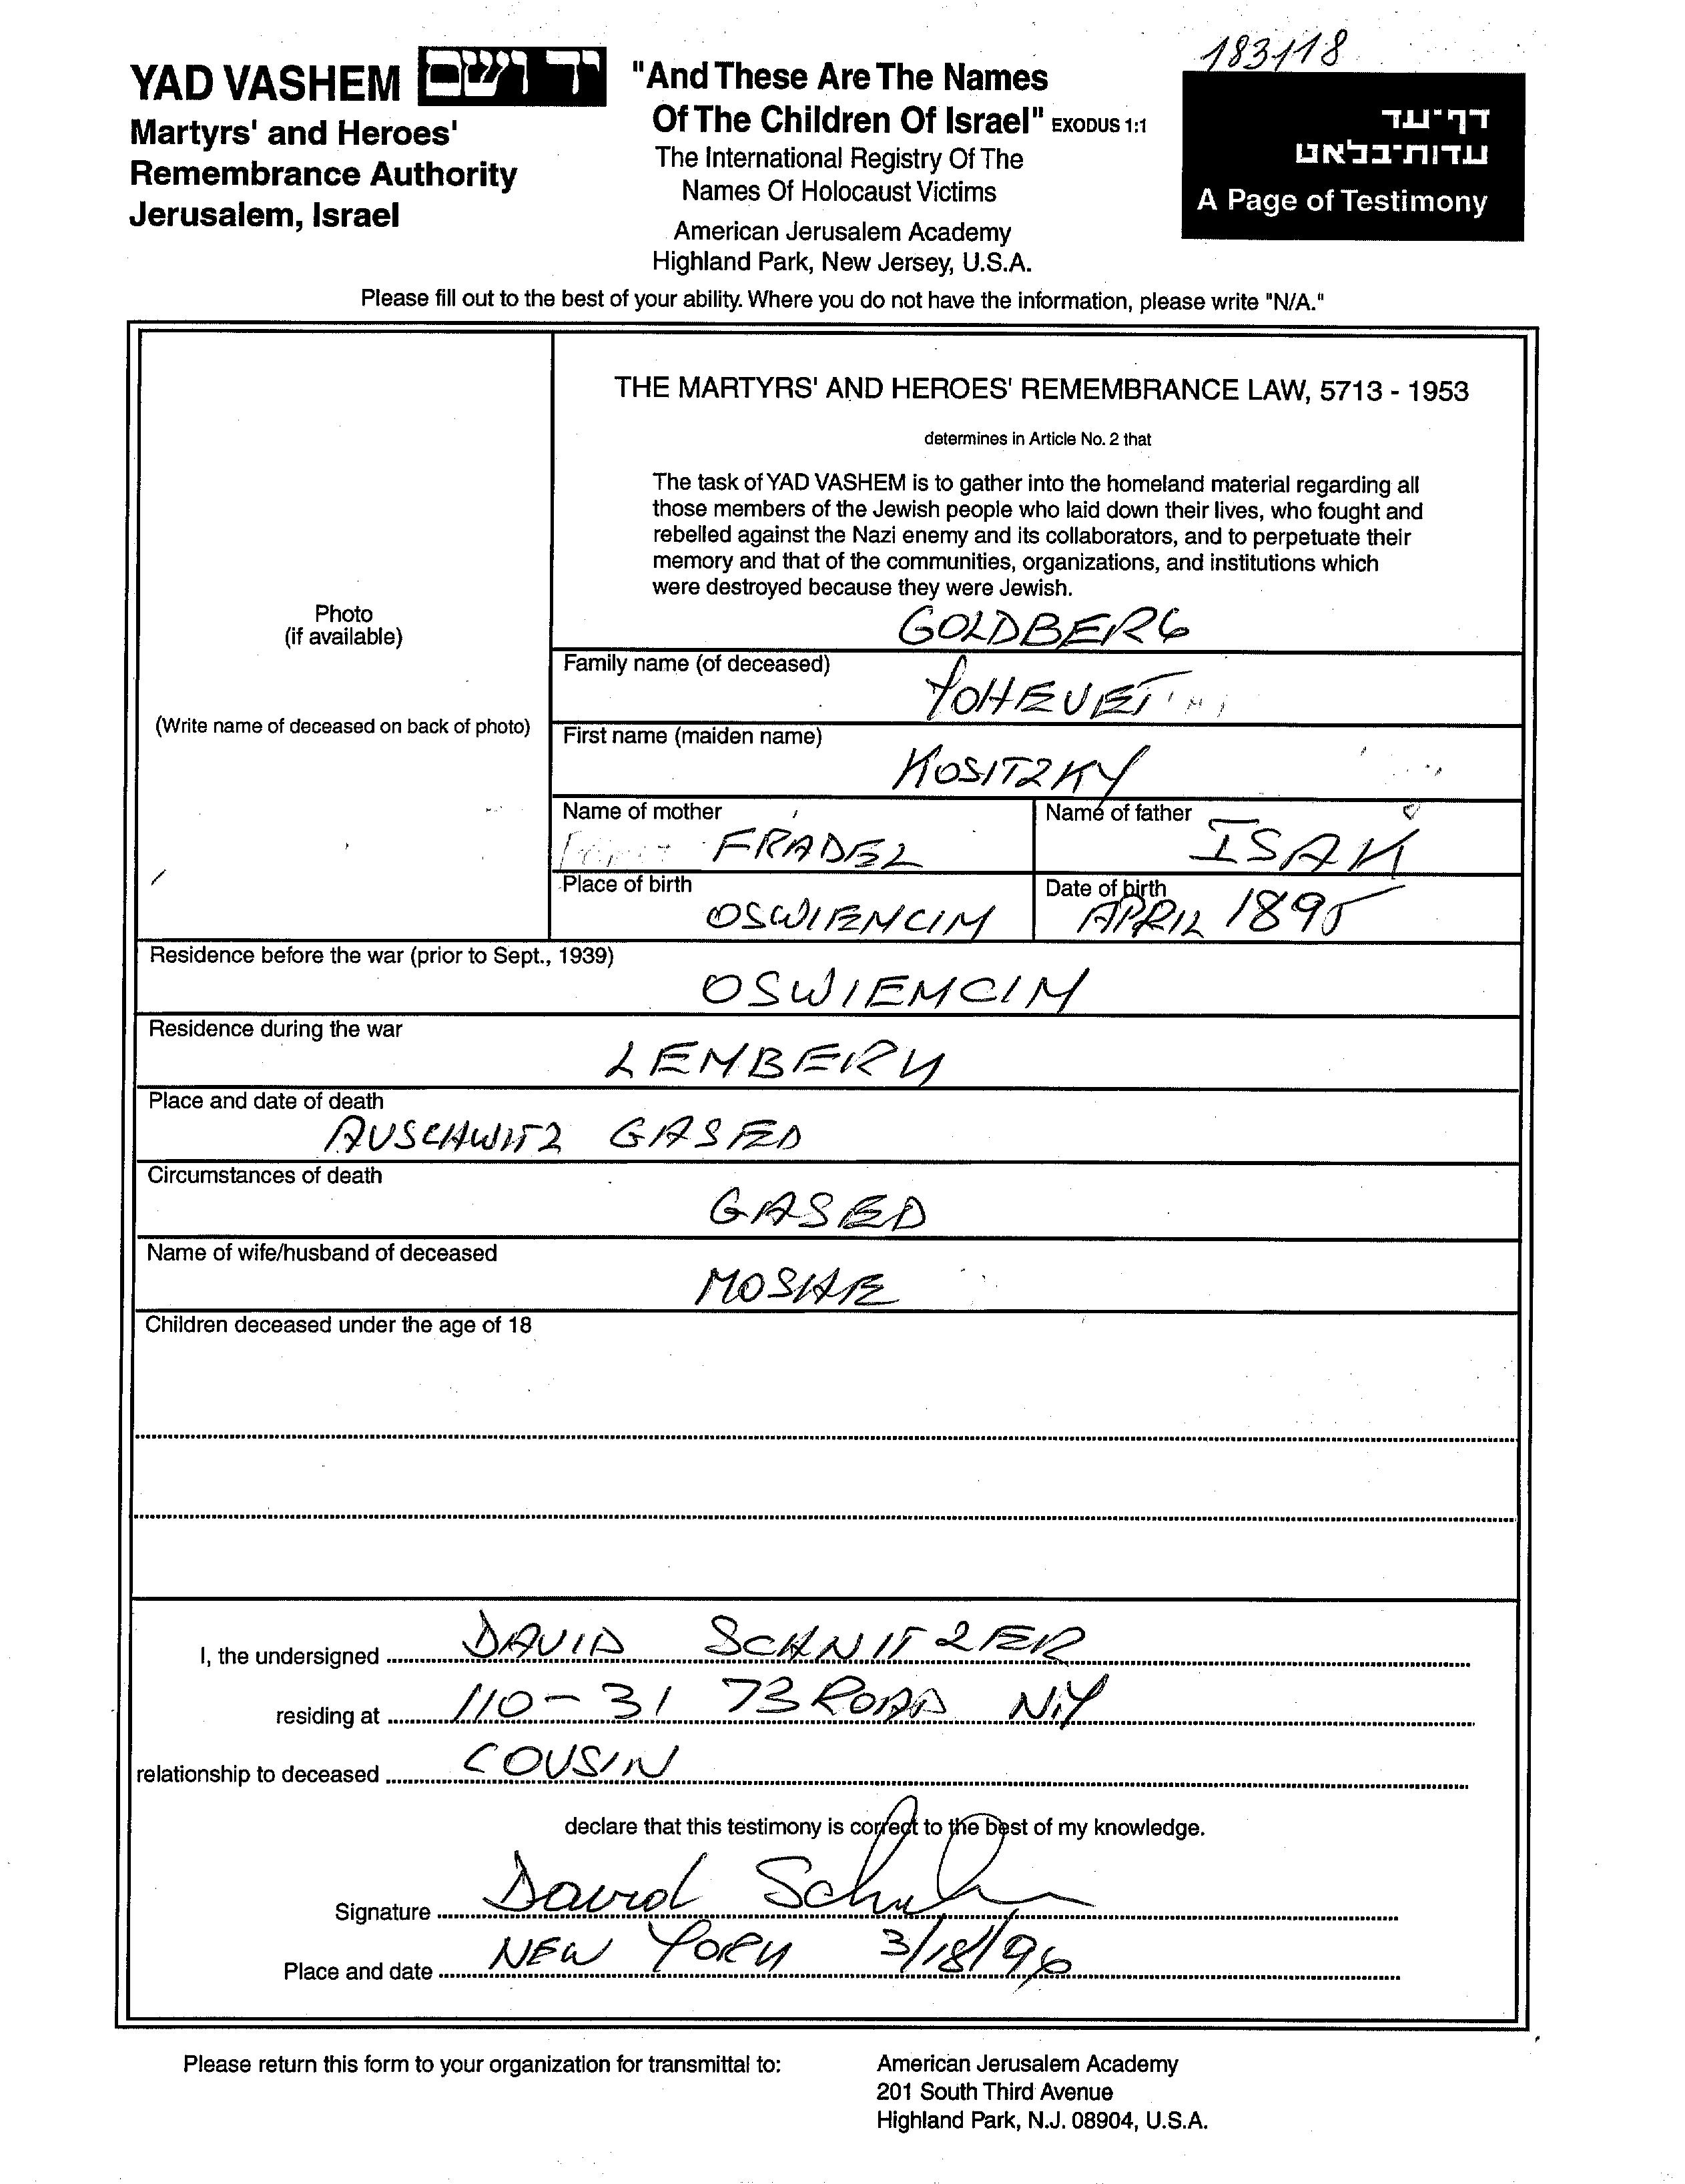 183118
YAD VASHEM יד ושם
Martyrs' and Heroes'
Remembrance Authority
Jerusalem, Israel
"And These Are The Names
Of The Children Of Israel" EXODUS 1:1
The International Registry Of The
Names Of Holocaust Victims
American Jerusalem Academy
Highland Park, New Jersey, U.S.A.
דף־עד
עדות־בלאט
A Page of Testimony
Please fill out to the best of your ability. Where you do not have the information, please write "N/A."
THE MARTYRS' AND HEROES' REMEMBRANCE LAW, 5713 - 1953
determines in Article No. 2 that
The task of YAD VASHEM is to gather into the homeland material regarding all
those members of the Jewish people who laid down their lives, who fought and
rebelled against the Nazi enemy and its collaborators, and to perpetuate their
memory and that of the communities, organizations, and institutions which
were destroyed because they were Jewish.
Photo
(if available)
(Write name of deceased on back of photo)
GOLDBERG
Family name (of deceased)
YOHEVET
First name (maiden name)
KOSITZKY
Name of mother
FRADEL
Name of father
ISAK
Place of birth
OSWIENCIM
Date of birth
APRIL 1895
Residence before the war (prior to Sept., 1939)
OSWIEMCIM
Residence during the war
LEMBERY
Place and date of death
AUSCHWITZ GASED
Circumstances of death
GASED
Name of wife/husband of deceased
MOSHE
Children deceased under the age of 18
I, the undersigned DAVID SCHNITZER
residing at 110-31 73 ROAD N.Y
relationship to deceased COUSIN
declare that this testimony is correct to the best of my knowledge.
Signature David
Place and date NEW YORK 3/18/96
Please return this form to your organization for transmittal to:
American Jerusalem Academy
201 South Third Avenue
Highland Park, N.J. 08904, U.S.A.